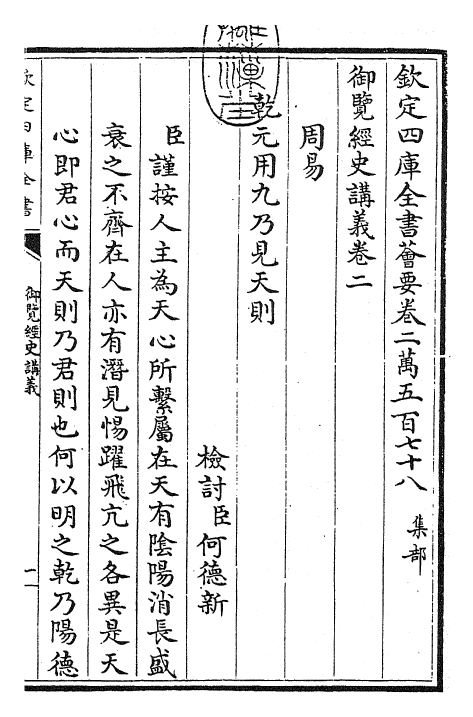 欽定四庫全書薈要卷二萬五百七十八 集部
御覽經史講義卷二
周易
乾元用九乃見天則
檢討臣何德新
臣謹按人主為天心所繫屬在天有陰陽消長盛
衰之不齊在人亦有潛見惕躍飛亢之各異是天
心即君心而天則乃君則也何以明之乾乃陽德
欽定四庫全書
御覽經史講義
一